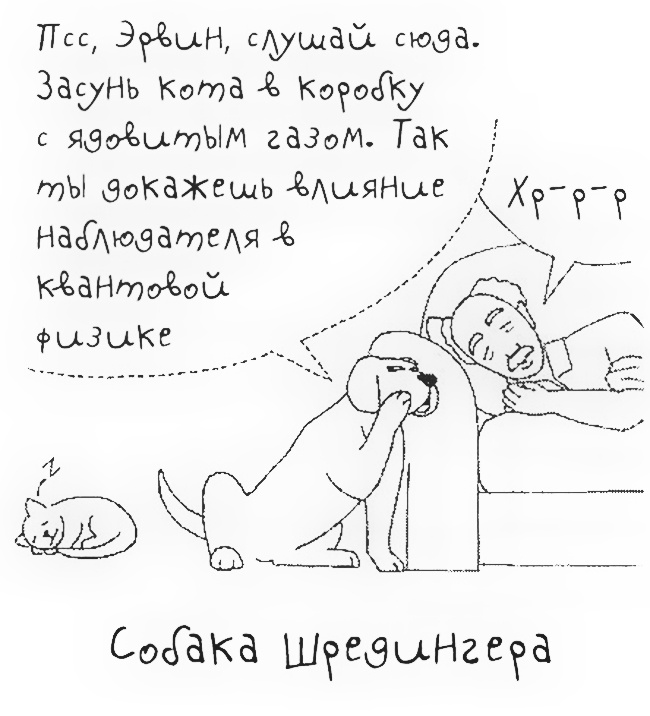 Псс, Эрвин, слушай сюда.
Засунь кота в коробку
с ядовитым газом. Так
ты докажешь влияние
наблюдателя в
квантовой
физике
Хр-р-р
Z
Собака Шредингера